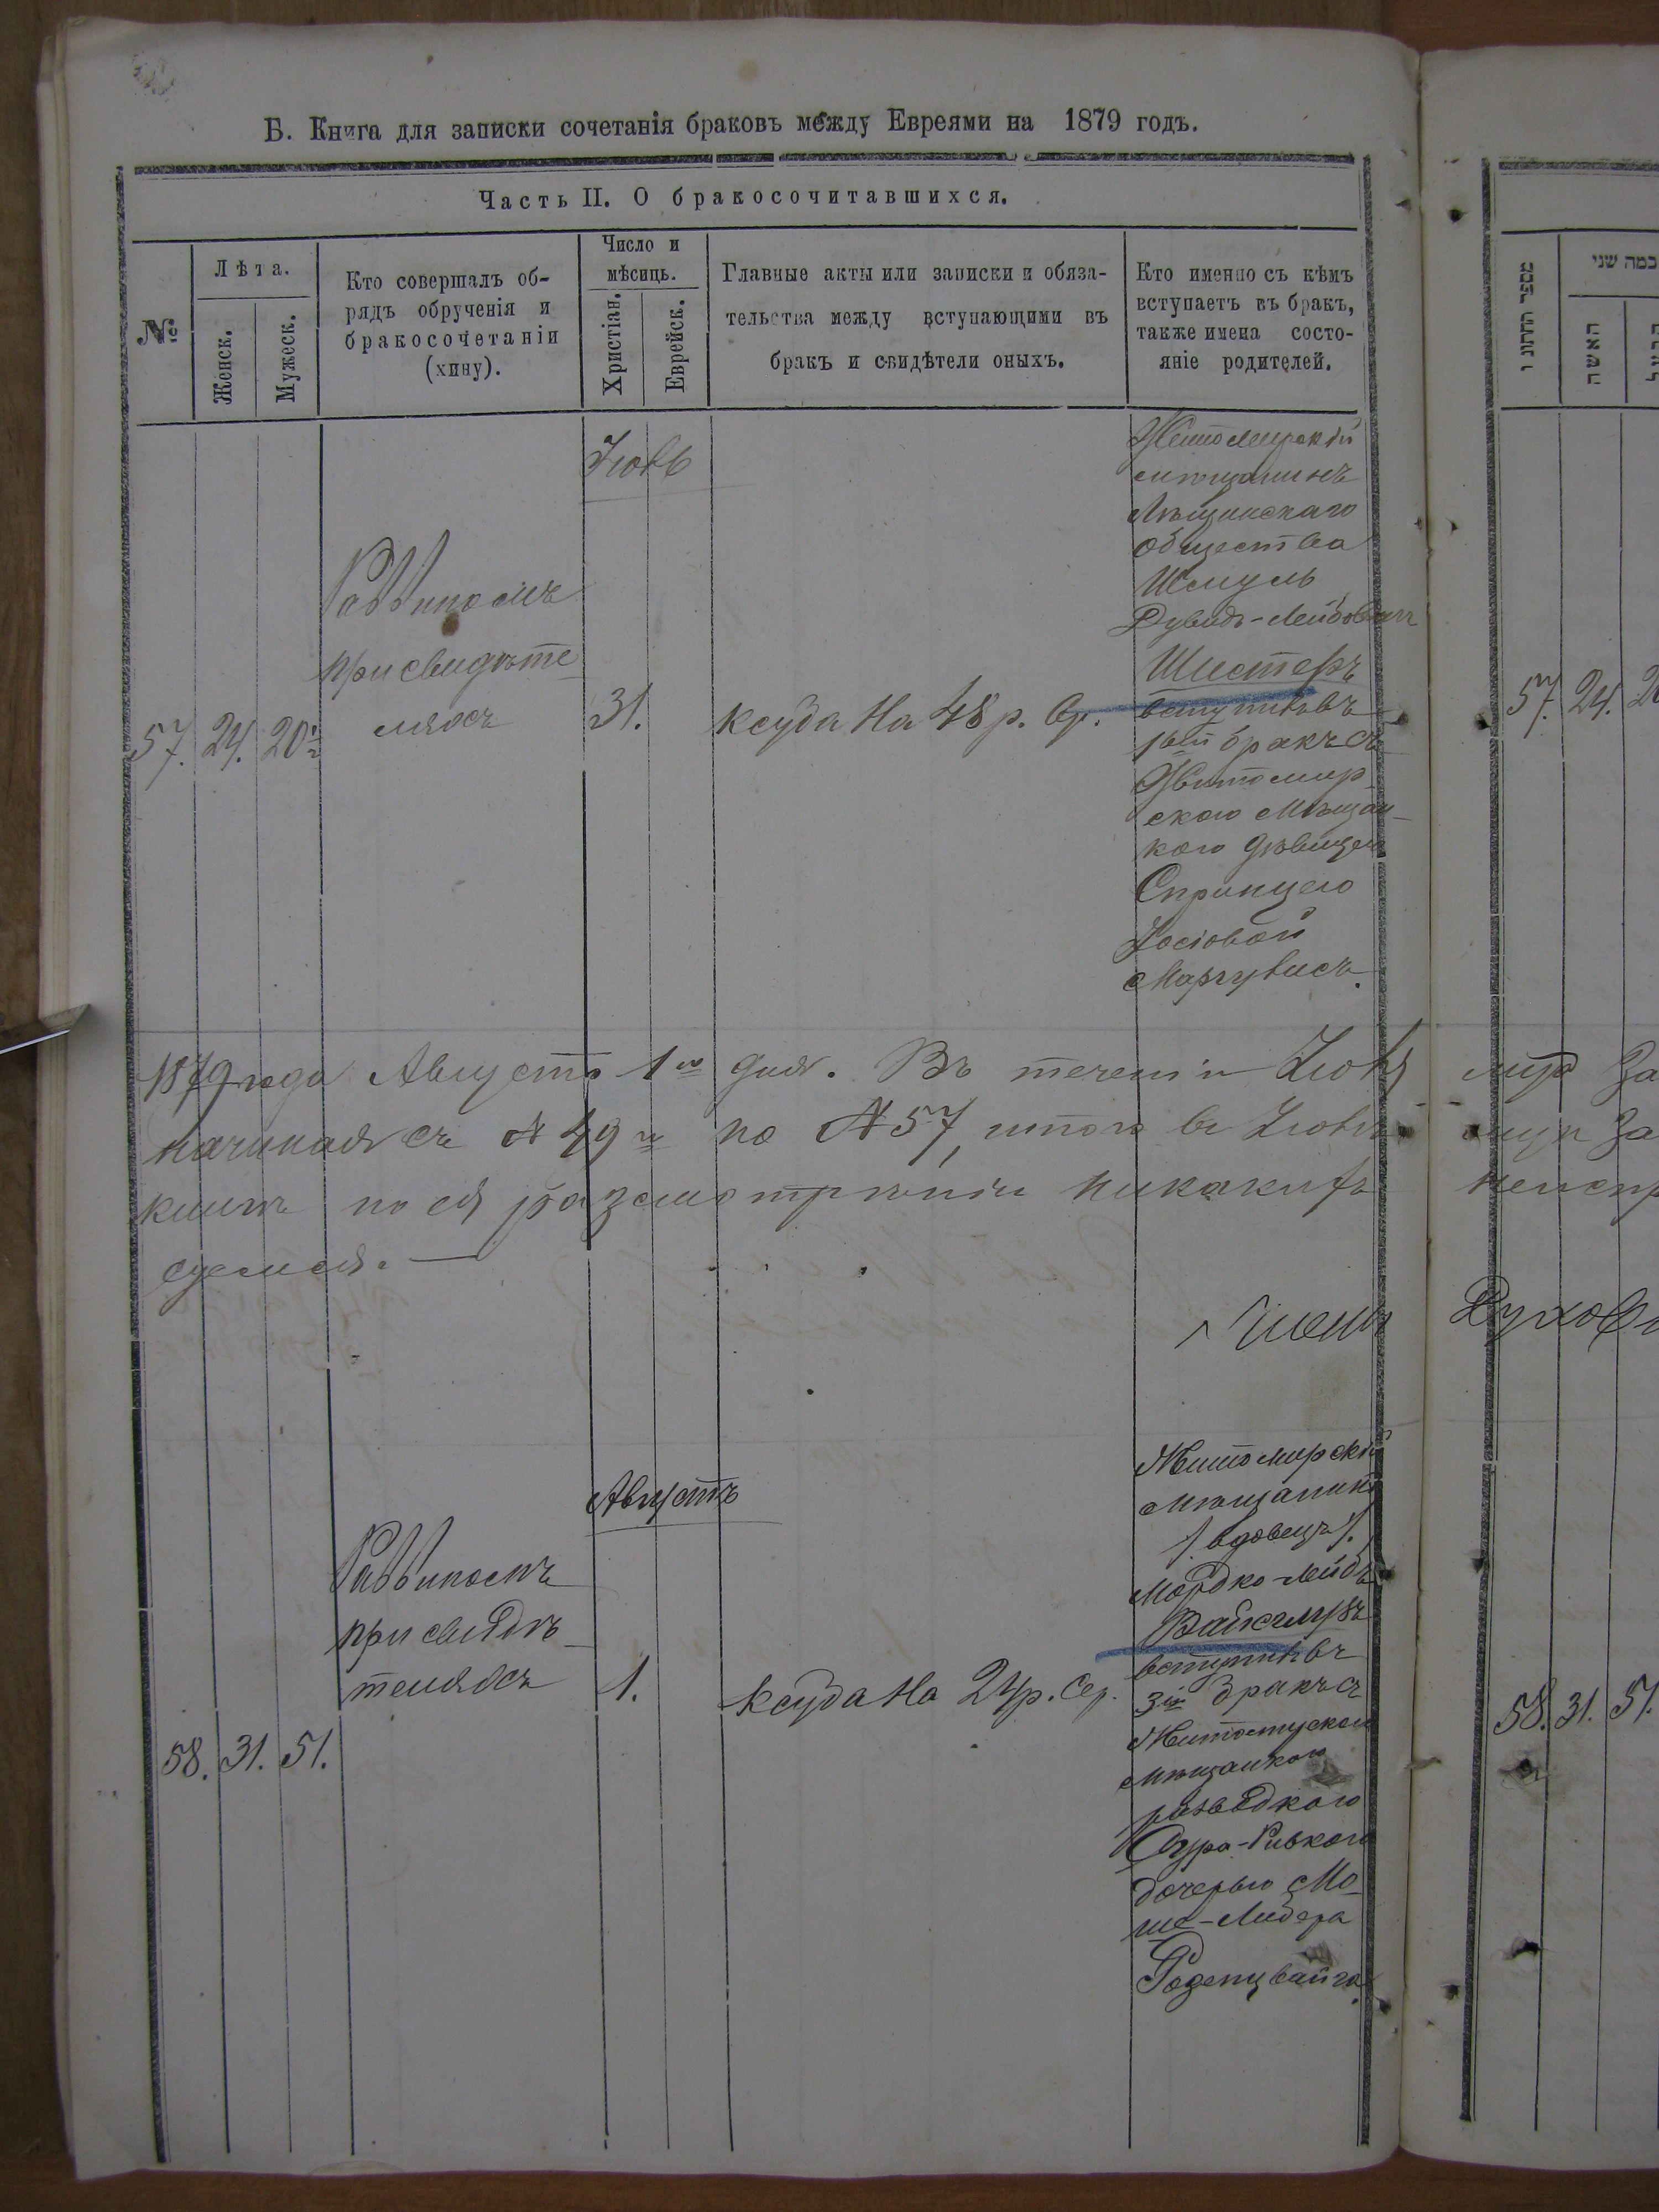 Б. Книга для записки сочетанія браковъ между Евреями на 1879 годъ.
Часть II. О бракосочитавшихся.
№
Лѣта.
Женск.
Мужеск.
Кто совершалъ об-
рядъ обрученія и
бракосочетаніи
(хину).
Число и
мѣсяць.
Христіан.
Еврейск.
Главные акты или записки и обяза-
тельства между вступающими въ
бракъ и свидѣтели оныхъ.
Кто именно съ кѣмъ
вступаетъ въ бракъ,
также имена состо-
яніе родителей.
57. 24. 20
Раввиномъ
при свидѣте
ляхъ
Іюль
31.
ксуба на 48 р. ср.
Житомирскій
мѣщанинъ
Лѣщинскаго
общества
Шмуль
Дувидъ-Лейбовичъ
Шистеръ
вступилъ въ
1ый бракъ съ
Житомир
скою мѣщан
кою дѣвицею
Спринцею
Іосіовой
Маргулисъ.
1879 года Августа 1го дня. Въ теченіи Іюля
начиная съ № 49 по № 57, итого въ Іюлѣ
книгѣ по ея разсмотрѣніи никакихъ
Члены
58. 31. 51.
Раввиномъ
при свидѣ
теляхъ
Августъ
1.
ксуба на 24 р. сер.
Житомирскій
мѣщанинъ
/. вдовецъ ./
Мордко-Лейбъ
Вайсмузъ
вступилъ въ
3й бракъ съ
Житомирскою
мѣщанкою
разводкою
Сура-Ривкою
дочерью Мо
ше-Лидера
Розенцвайга.
מספר החתונו
כמה שני
האשה
57. 24.
58. 31. 51.
Духовн